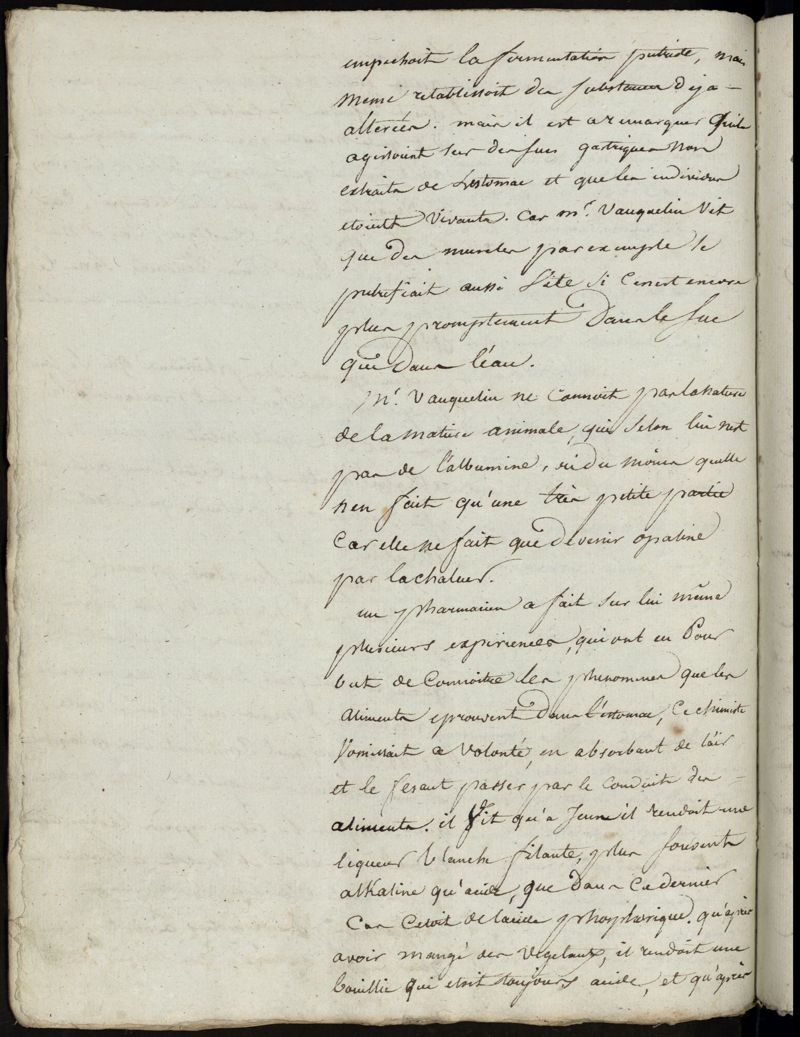 empechoit la fermentation putride, mais
meme retablissoit des substances deja
alterées. mais il est a remarquer qu'ils
agissoient sur des sucs gastriques non
extraits de l'estomac et que les individus
etoient vivants. car mr. Vauquelin vit
que des muscles par exemple se
putrefiait aussi vite si ce n'est encore
plus promptement dans le suc
que dans l'eau.
Mr. Vauquelin ne connoit pas la nature
de la matiere animale, qui selon lui n'est
pas de l'albumine, ou du moins quelle
n'en fait qu'une tres petite partie
Car elle ne fait que devenir opaline
par la chaleur.
un pharmacien a fait sur lui même
plusieurs experiences, qui ont eu pour
but de connoitre les phenomenes que les
aliments eprouvent dans l'estomac, Ce chimiste
vomissait a volonté, en absorbant de l'air
et le fesant passer par le conduit des
aliments. il vit qu'a jeune il rendoit une
liqueur blanche filante, plus souvent
alkaline qu'acide, que dans ce dernier
Cas c'etoit de l'acide phosphorique. qu'après
avoir mangé des vegetaux, il rendoit une
bouillie qui etoit toujours acide, et qu'après